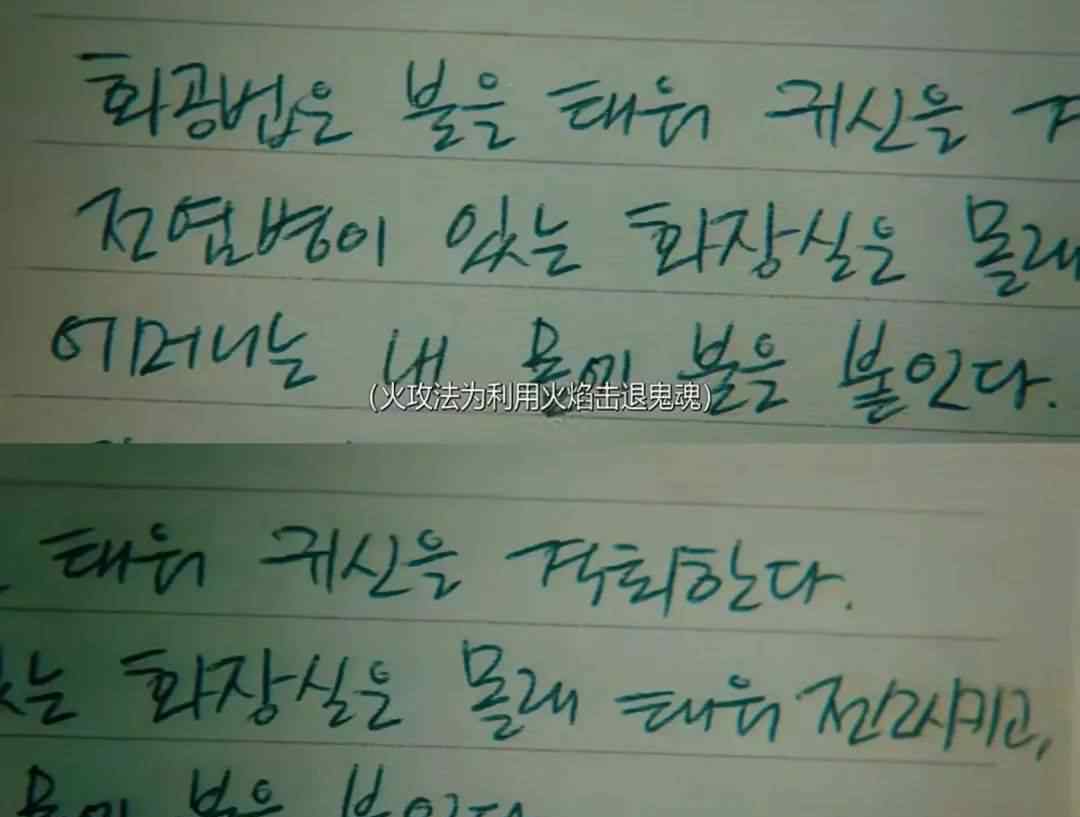 화공법은 불을 태워 귀신을
전염병이 있는 화장실은 몰래
어머니는 내 몸에 불을 붙인다.
(火攻法为利用火焰击退鬼魂)
태워 귀신을 격퇴한다.
는 화장실은 몰래 태워